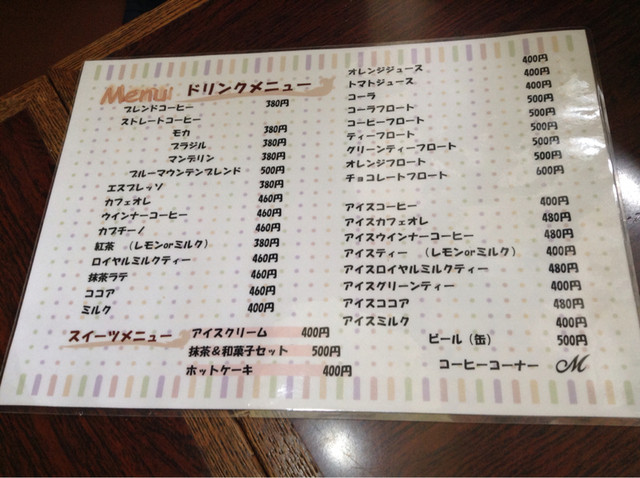 Menu ドリンクメニュー
ブレンドコーヒー 380円
ストレートコーヒー
モカ 380円
ブラジル 380円
マンデリン 380円
ブルーマウンテンブレンド 500円
エスプレッソ 380円
カフェオレ 460円
ウインナーコーヒー 460円
カプチーノ 460円
紅茶 (レモンorミルク) 380円
ロイヤルミルクティー 460円
抹茶ラテ 460円
ココア 460円
ミルク 400円
オレンジジュース 400円
トマトジュース 400円
コーラ 400円
コーラフロート 500円
コーヒーフロート 500円
ティーフロート 500円
グリーンティーフロート 500円
オレンジフロート 500円
チョコレートフロート 600円
アイスコーヒー 400円
アイスカフェオレ 480円
アイスウインナーコーヒー 480円
アイスティー (レモンorミルク) 400円
アイスロイヤルミルクティー 480円
アイスグリーンティー 400円
アイスココア 480円
アイスミルク 400円
ビール(缶) 500円
スイーツメニュー
アイスクリーム 400円
抹茶&和菓子セット 500円
ホットケーキ 400円
コーヒーコーナー M